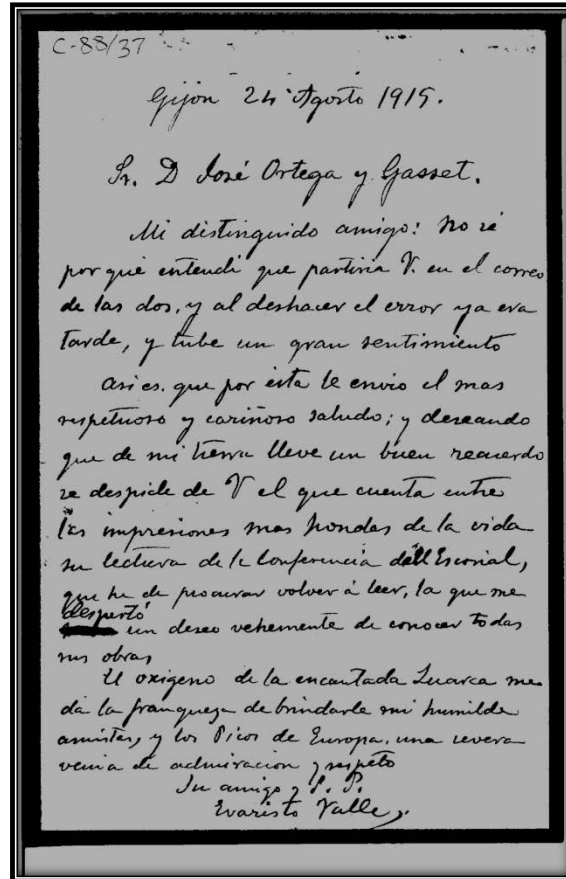 C-88/37
Gijón 24 Agosto 1915.
Sr. D José Ortega y Gasset.
Mi distinguido amigo: No sé
por qué entendí que partiria V. en el correo
de las dos, y al deshacer el error ya era
tarde, y tube un gran sentimiento
Asi es. que por ésta le envio el mas
respetuoso y cariñoso saludo; y deseando
que de mi tierra lleve un buen recuerdo
se despide de V el que cuenta entre
las impresiones mas hondas de la vida
su lectura de la Conferencia del Escorial,
que he de procurar volver á leer, la que me
despertó
un deseo vehemente de conocer todas
sus obras
El oxigeno de la encantada Luarca me
da la franqueza de brindarle mi humilde
amistad, y los Picos de Europa. una severa
venia de admiracion y respeto
Su amigo y S. S.
Evaristo Valle